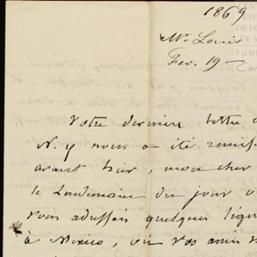 1869
Mr. Louis
Fev. 19 —
Votre dernière lettre
N. y nous a été remise
avant hier, mon cher
le lendemain du jour
vous adressais quelques lignes
à Mexico, ou vos amis